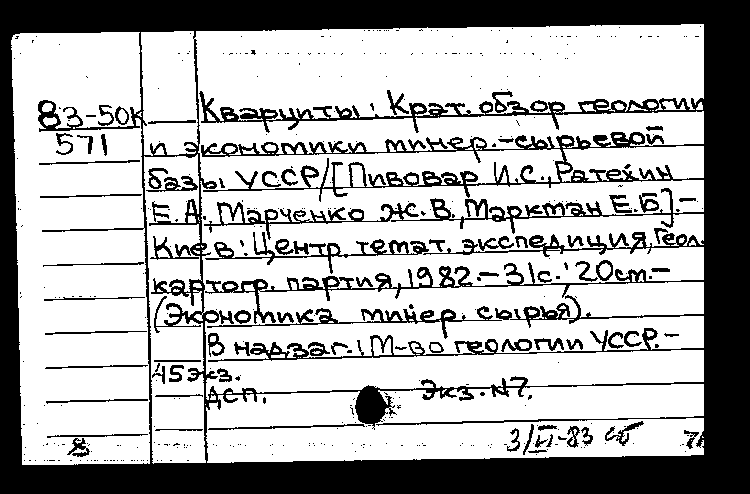 83-50к Кварциты: Крат. обзор геологии
571 и экономики минер.-сырьевой
базы УССР/[Пивовар И.С., Ратехин
Е.А., Марченко Ж.В., Марктан Е.Б.].-
Киев: Центр. темат. экспедиция, Геол.
картогр. партия, 1982.-31с.; 20см.-
(Экономика минер. сырья).
В надзаг.: М-во геологии УССР.-
45экз.
ДСП. Экз. N7.
8 3/VI-83 сб